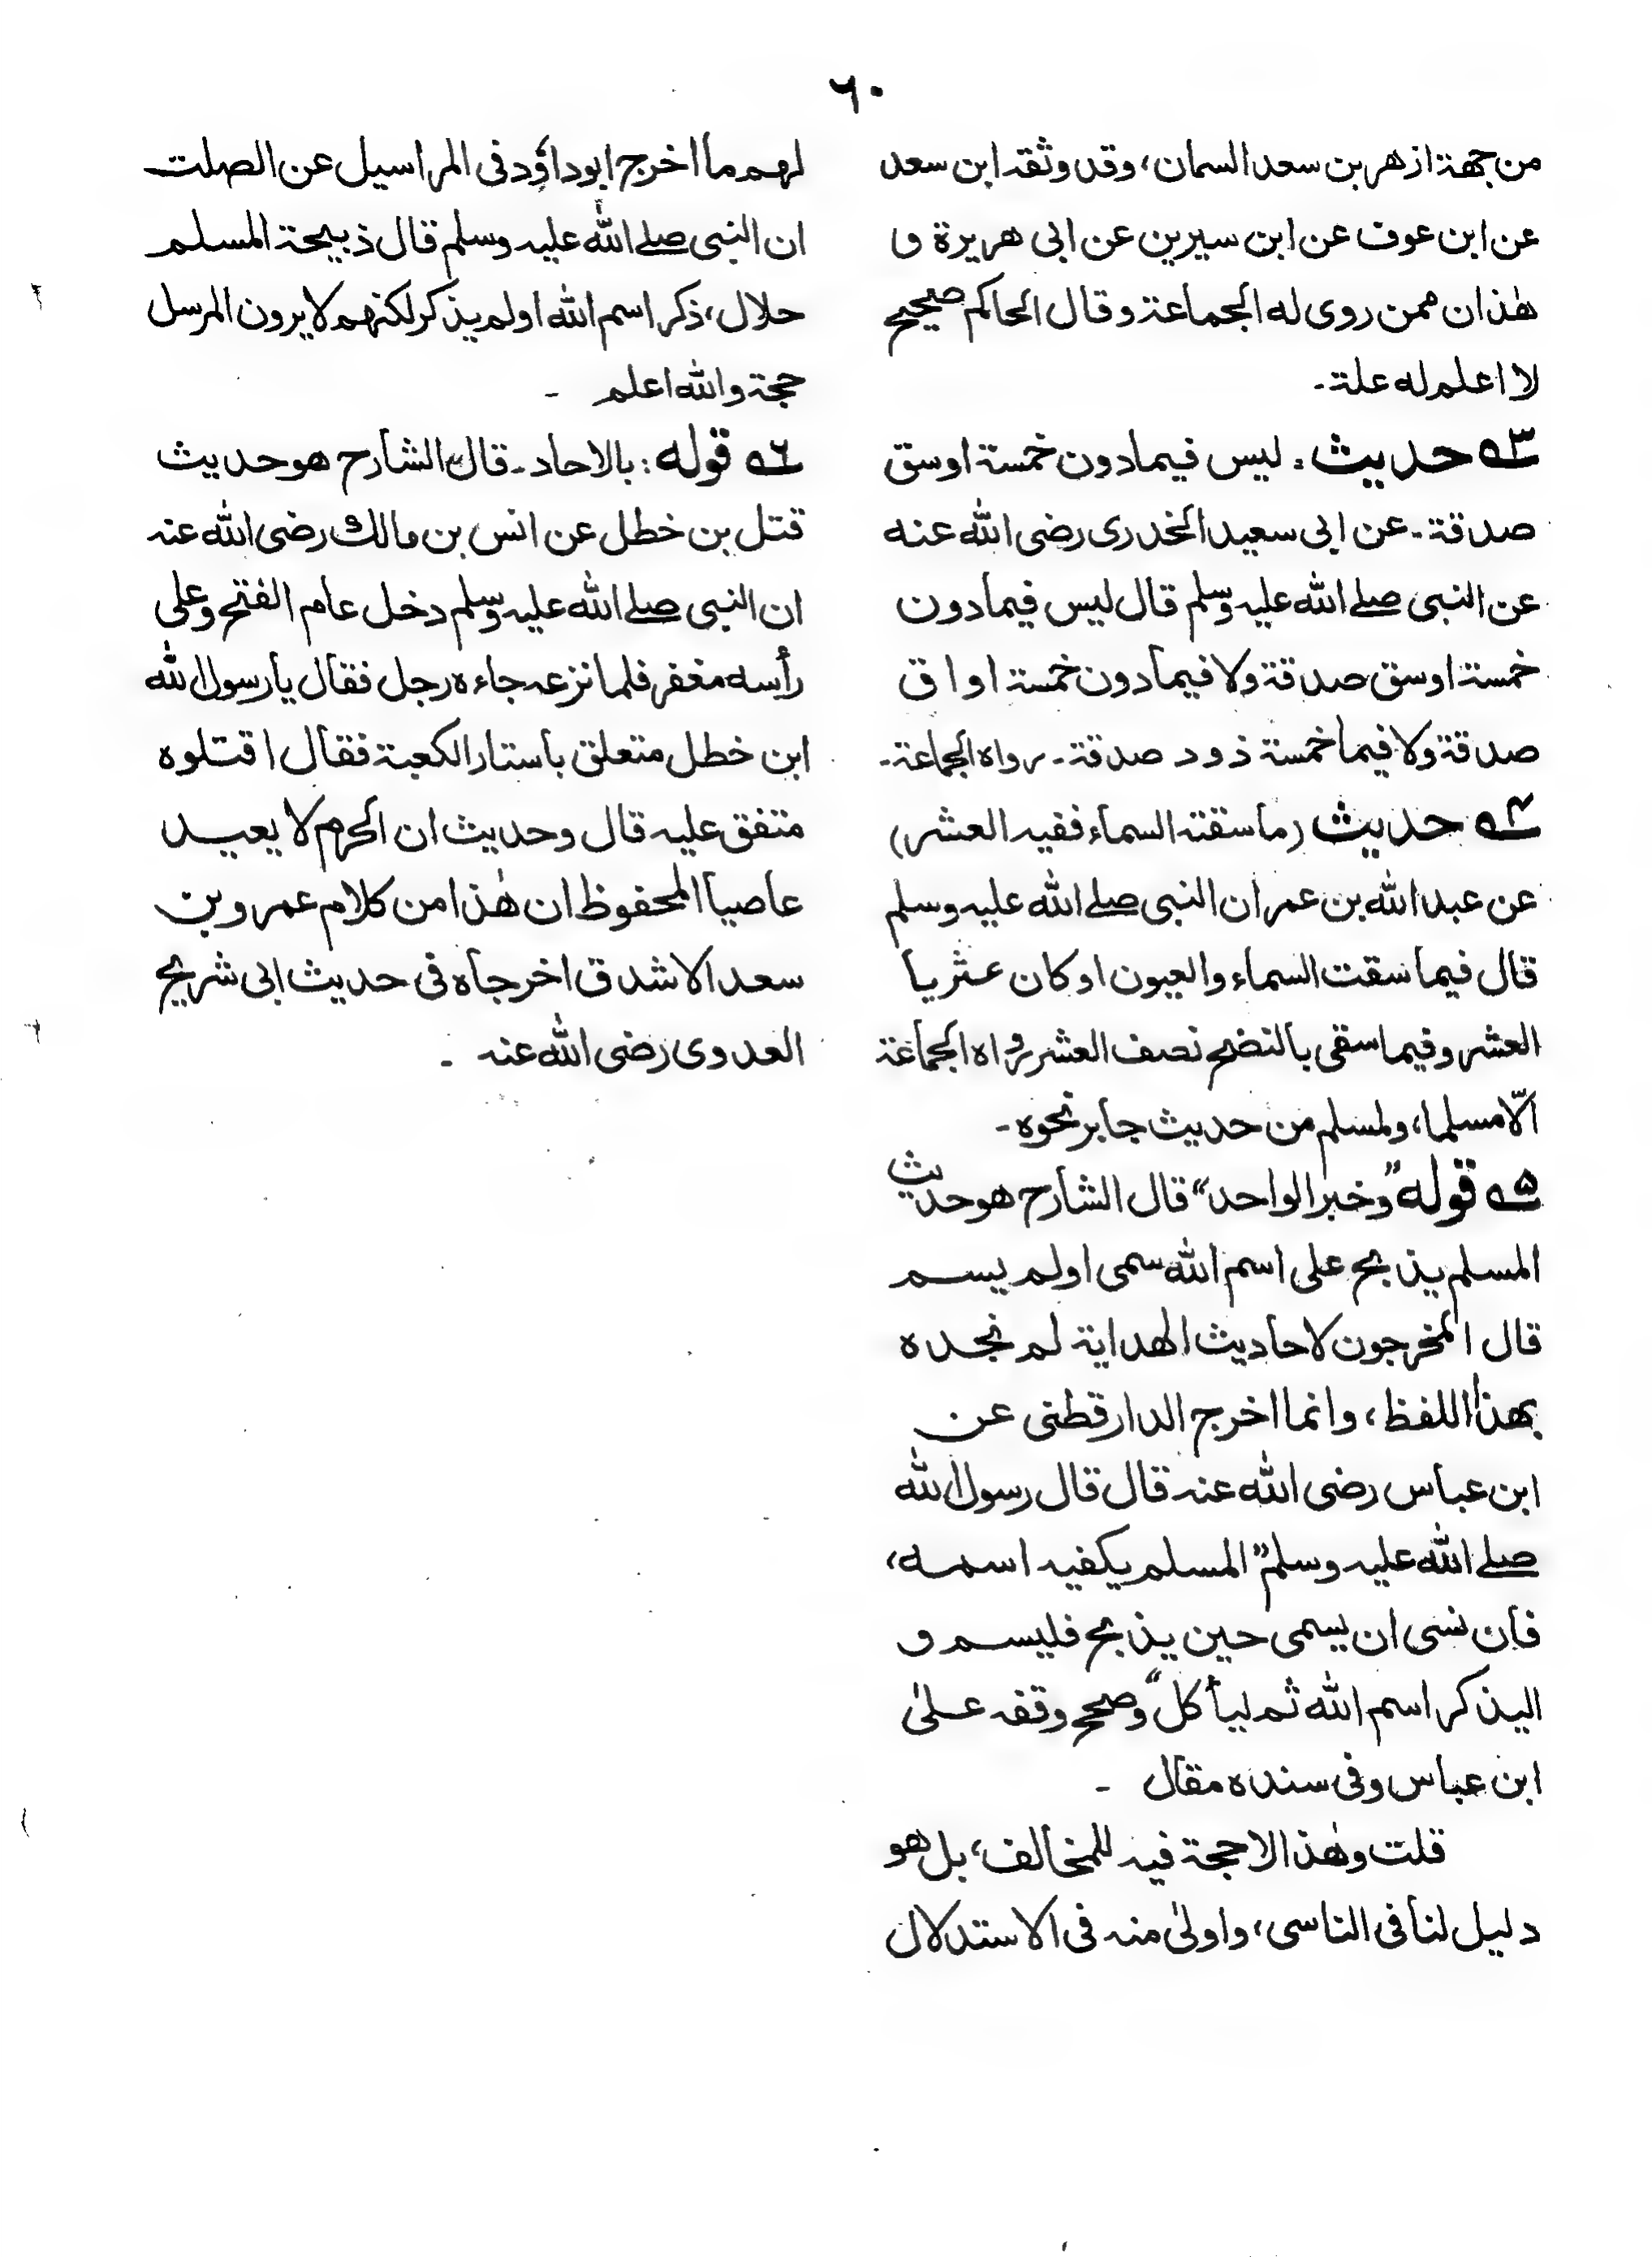 ٦٠
من جهة ازهر بن سعد السمان، وقد وثقه ابن سعد
عن ابن عوف عن ابن سيرين عن ابى هريرة و
هٰذان ممن روى له الجماعة وقال الحاكم صحيح
لا اعلم له علة۔
٥٣ حديث: ليس فيما دون خمسة اوسق
صدقة۔ عن ابى سعيد الخدرى رضى الله عنه
عن النبى صلے الله عليه وسلم قال ليس فيما دون
خمسة اوسق صدقة ولا فيما دون خمسة اواق
صدقة ولا فيما خمسة ذود صدقة۔ رواه الجماعة۔
٥٤ حديث (ما سقته السماء ففيه العشر)
عن عبد الله بن عمر ان النبى صلے الله عليه وسلم
قال فيما سقت السماء والعيون اوكان عثريا
العشر وفيما سقى بالنضح نصف العشر رواه الجماعة
الّا مسلما، ولمسلم من حديث جابر نحوه۔
٥٥ قوله ”وخبر الواحد“ قال الشارح هو حديث
المسلم يذبح على اسم الله سمى اولم يسم
قال المخرجون لاحاديث الهداية لم نجده
بهذا اللفظ، وانما اخرج الدارقطنى عن
ابن عباس رضى الله عنه قال قال رسول الله
صلے الله عليه وسلم ”المسلم يكفيه اسمه،
فان نسى ان يسمى حين يذبح فليسم و
اليذكر اسم الله ثم ليأكل“ وصحح وقفه علىٰ
ابن عباس وفى سنده مقال ۔
قلت وهٰذا لاحجة فيه للمخالف، بل هو
دليل لنا فى الناسى، واولىٰ منه فى الاستدلال
لهم ما اخرج ابوداؤد فى المراسيل عن الصلت
ان النبى صلے الله عليه وسلم قال ذبيحة المسلم
حلال، ذكر اسم الله اولم يذكر لكنهم لايرون المرسل
حجة والله اعلم ۔
٥٦ قوله: بالاحاد۔ قال الشارح هو حديث
قتل بن خطل عن انس بن مالك رضى الله عنه
ان النبى صلے الله عليه وسلم دخل عام الفتح وعلى
رأسه مغفر فلما نزعه جاءه رجل فقال يا رسول الله
ابن خطل متعلق باستار الكعبة فقال اقتلوه
متفق عليه قال وحديث ان الحرم لا يعيد
عاصيا المحفوظ ان هٰذا من كلام عمرو بن
سعد الاشدق اخرجاه فى حديث ابى شريح
العدوى رضى الله عنه ۔